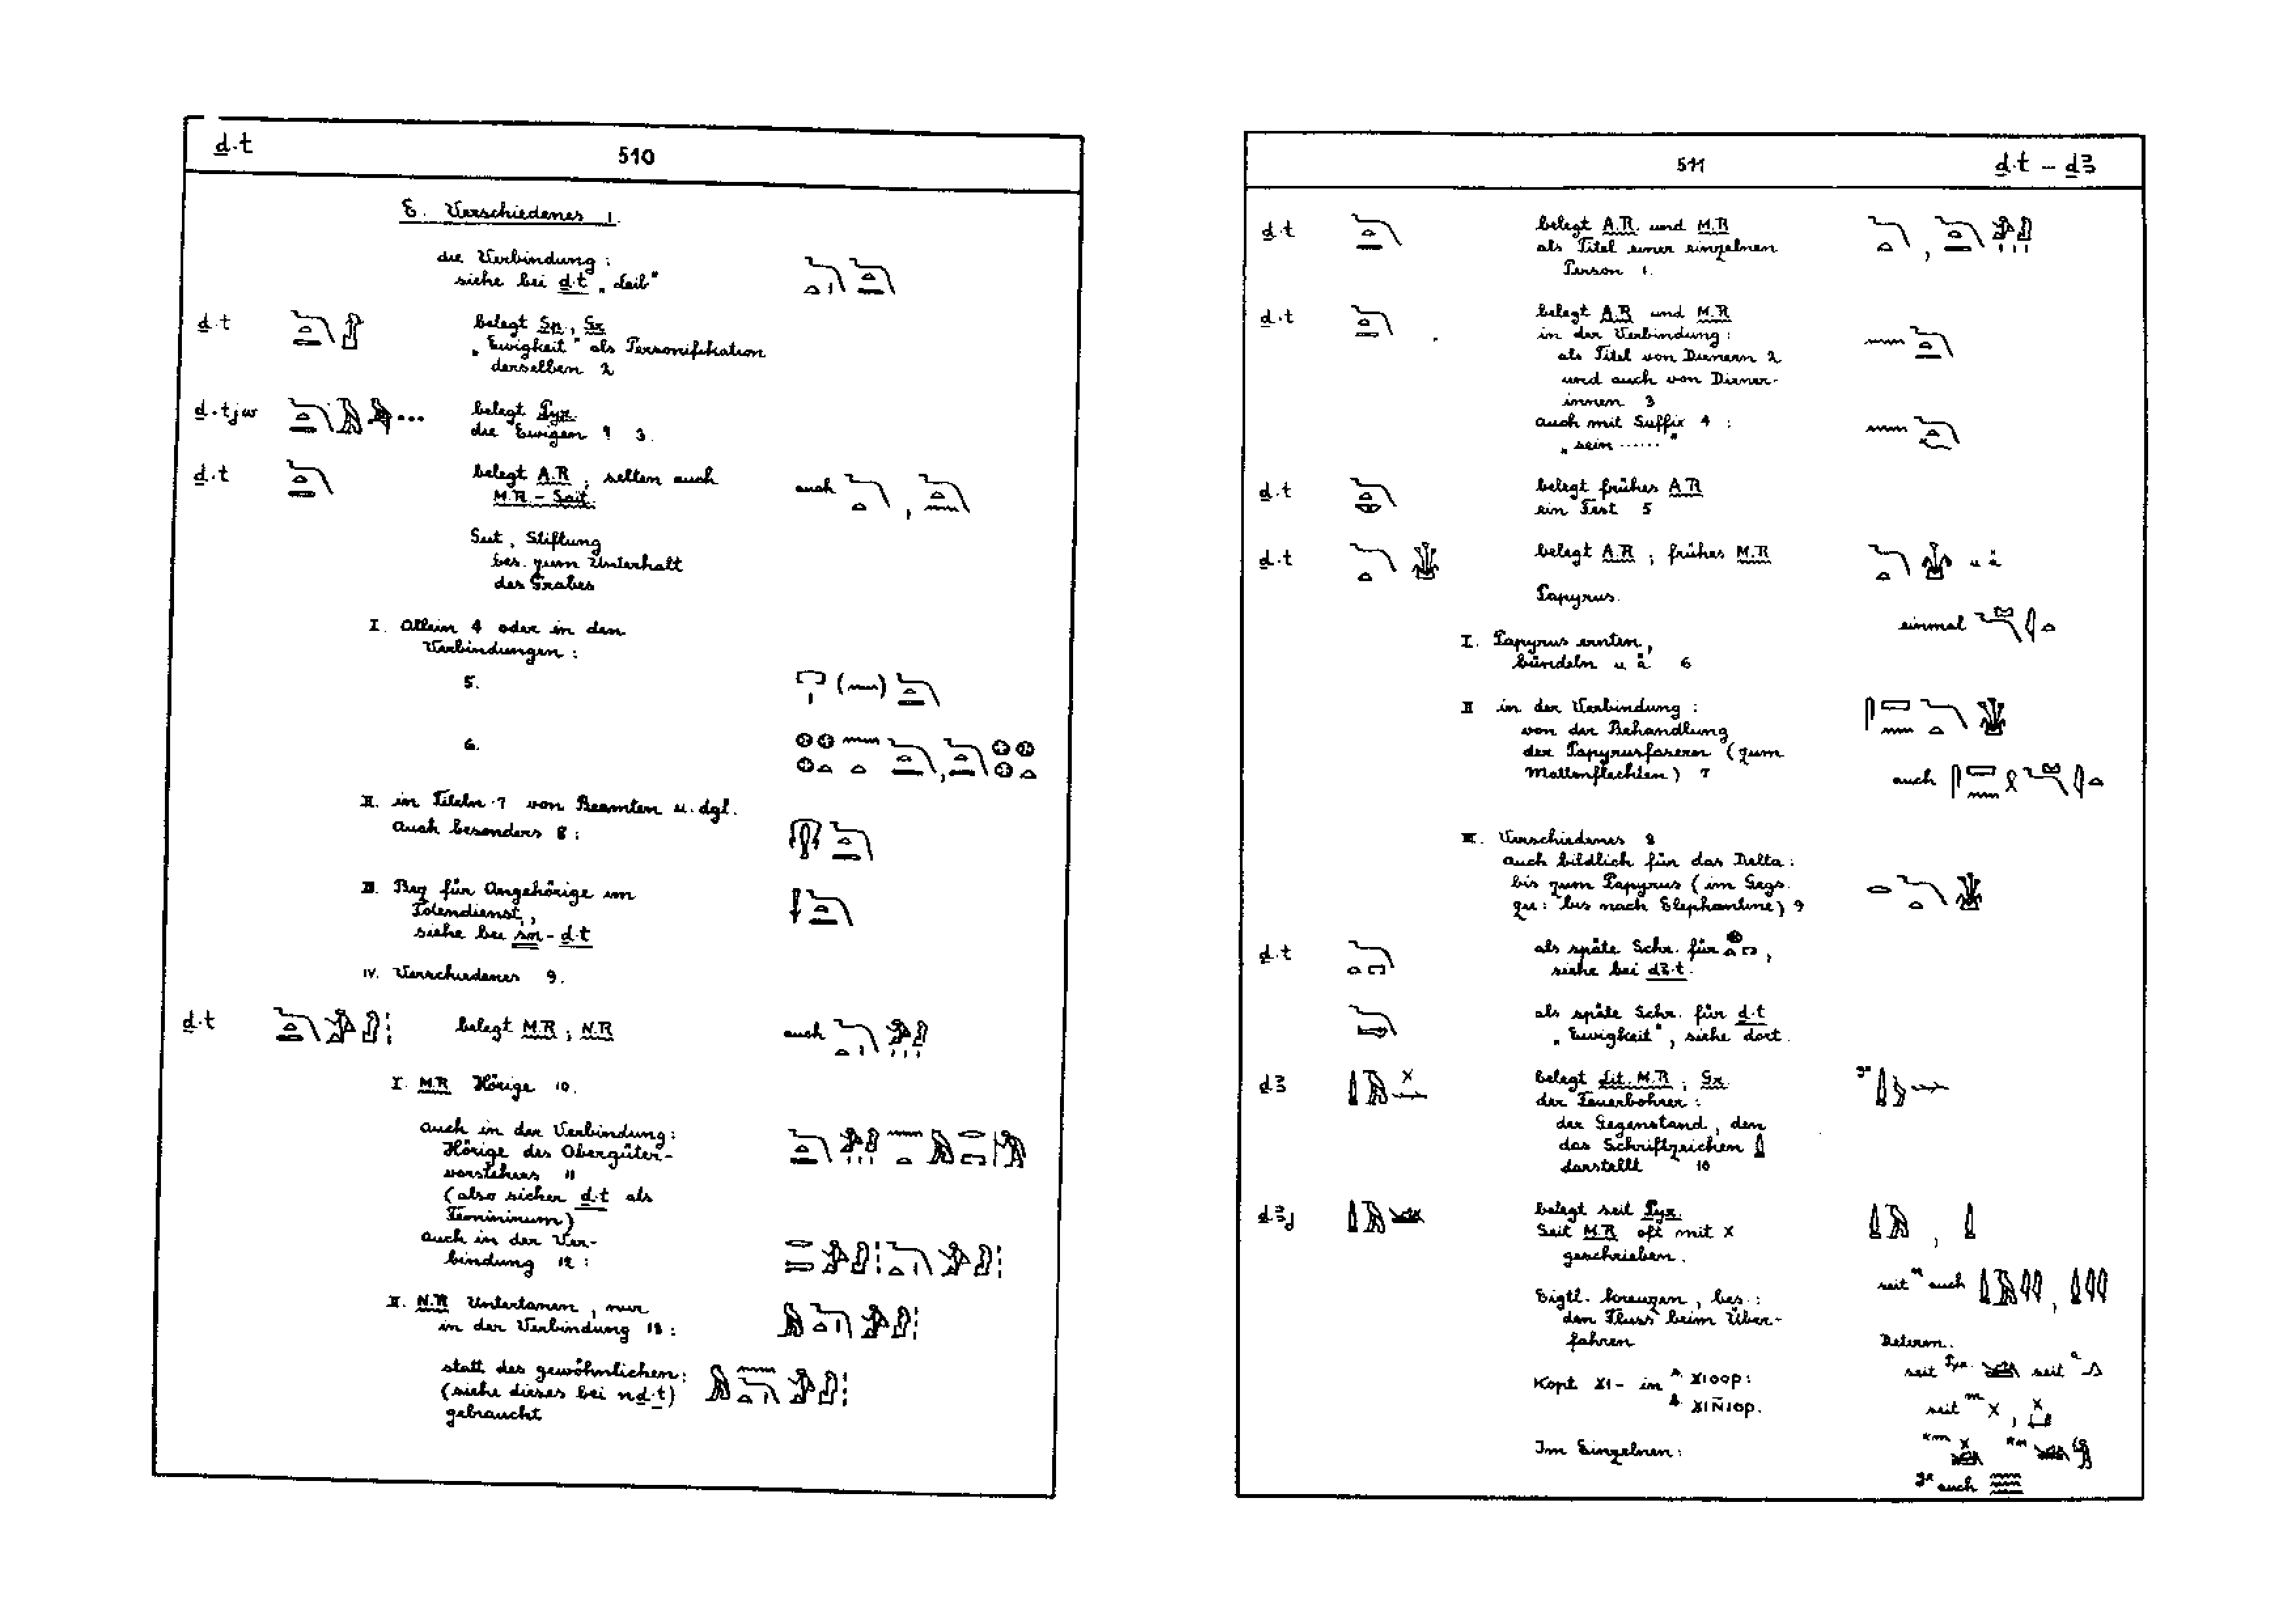 ḏ.t
510
E. Verschiedenes 1.
die Verbindung:
siehe bei ḏ.t „Leib"
ḏ.t belegt Sp., Gr.
„Ewigkeit" als Personifikation
derselben 2
ḏ.tjw ... belegt Pyr.
die Ewigen ? 3.
ḏ.t belegt A.R., selten auch
M.R. - Sait. auch ,
Gut, Stiftung
bes. zum Unterhalt
des Grabes
I. Allein 4 oder in den
Verbindungen:
5.
6.
II. in Titeln 7 von Beamten u. dgl.
auch besonders 8:
III. Bez. für Angehörige im
Totendienst,
siehe bei sn-ḏ.t
IV. Verschiedenes 9.
ḏ.t belegt M.R.; N.R. auch
I. M.R. Hörige 10.
auch in der Verbindung:
Hörige des Obergüter-
vorstehers 11
(also sicher ḏ.t als
Femininum)
auch in der Ver-
bindung 12:
II. N.R. Untertanen, nur
in der Verbindung 13:
statt des gewöhnlichen:
(siehe dieses bei nḏ.t)
gebraucht
511
ḏ.t - ḏꜣ
ḏ.t belegt A.R. und M.R.
als Titel einer einzelnen
Person 1.
ḏ.t belegt A.R. und M.R.
in der Verbindung:
als Titel von Dienern 2
und auch von Diener-
innen 3
auch mit Suffix 4:
„sein ......"
ḏ.t belegt frühes A.R.
ein Fest 5
ḏ.t belegt A.R.; frühes M.R. u ä
Papyrus.
einmal
I. Papyrus ernten,
bündeln u. ä. 6
II in der Verbindung:
von der Behandlung
der Papyrusfasern (zum
Mattenflechten) 7
auch
III. Verschiedenes 8
auch bildlich für das Delta:
bis zum Papyrus (im Gegs.
zu: bis nach Elephantine) 9
ḏ.t als späte Schr. für ,
siehe bei dꜣ.t.
als späte Schr. für ḏ.t
„Ewigkeit", siehe dort.
ḏꜣ belegt Lit. M.R.; Gr. gr
der Feuerbohrer:
der Gegenstand, den
das Schriftzeichen
darstellt 10
ḏꜣj belegt seit Pyr.
Seit M.R. oft mit x
geschrieben.
seit n auch ,
Eigtl. kreuzen, bes.:
den Fluss beim Über-
fahren
Determ.
seit Pyr. seit a
Kopt. ϫⲓ- in A ϫⲓⲟⲟⲣ:
B ϫⲓⲛ̄ⲓⲟⲣ.
seit m x ,
Im Einzelnen:
gr auch